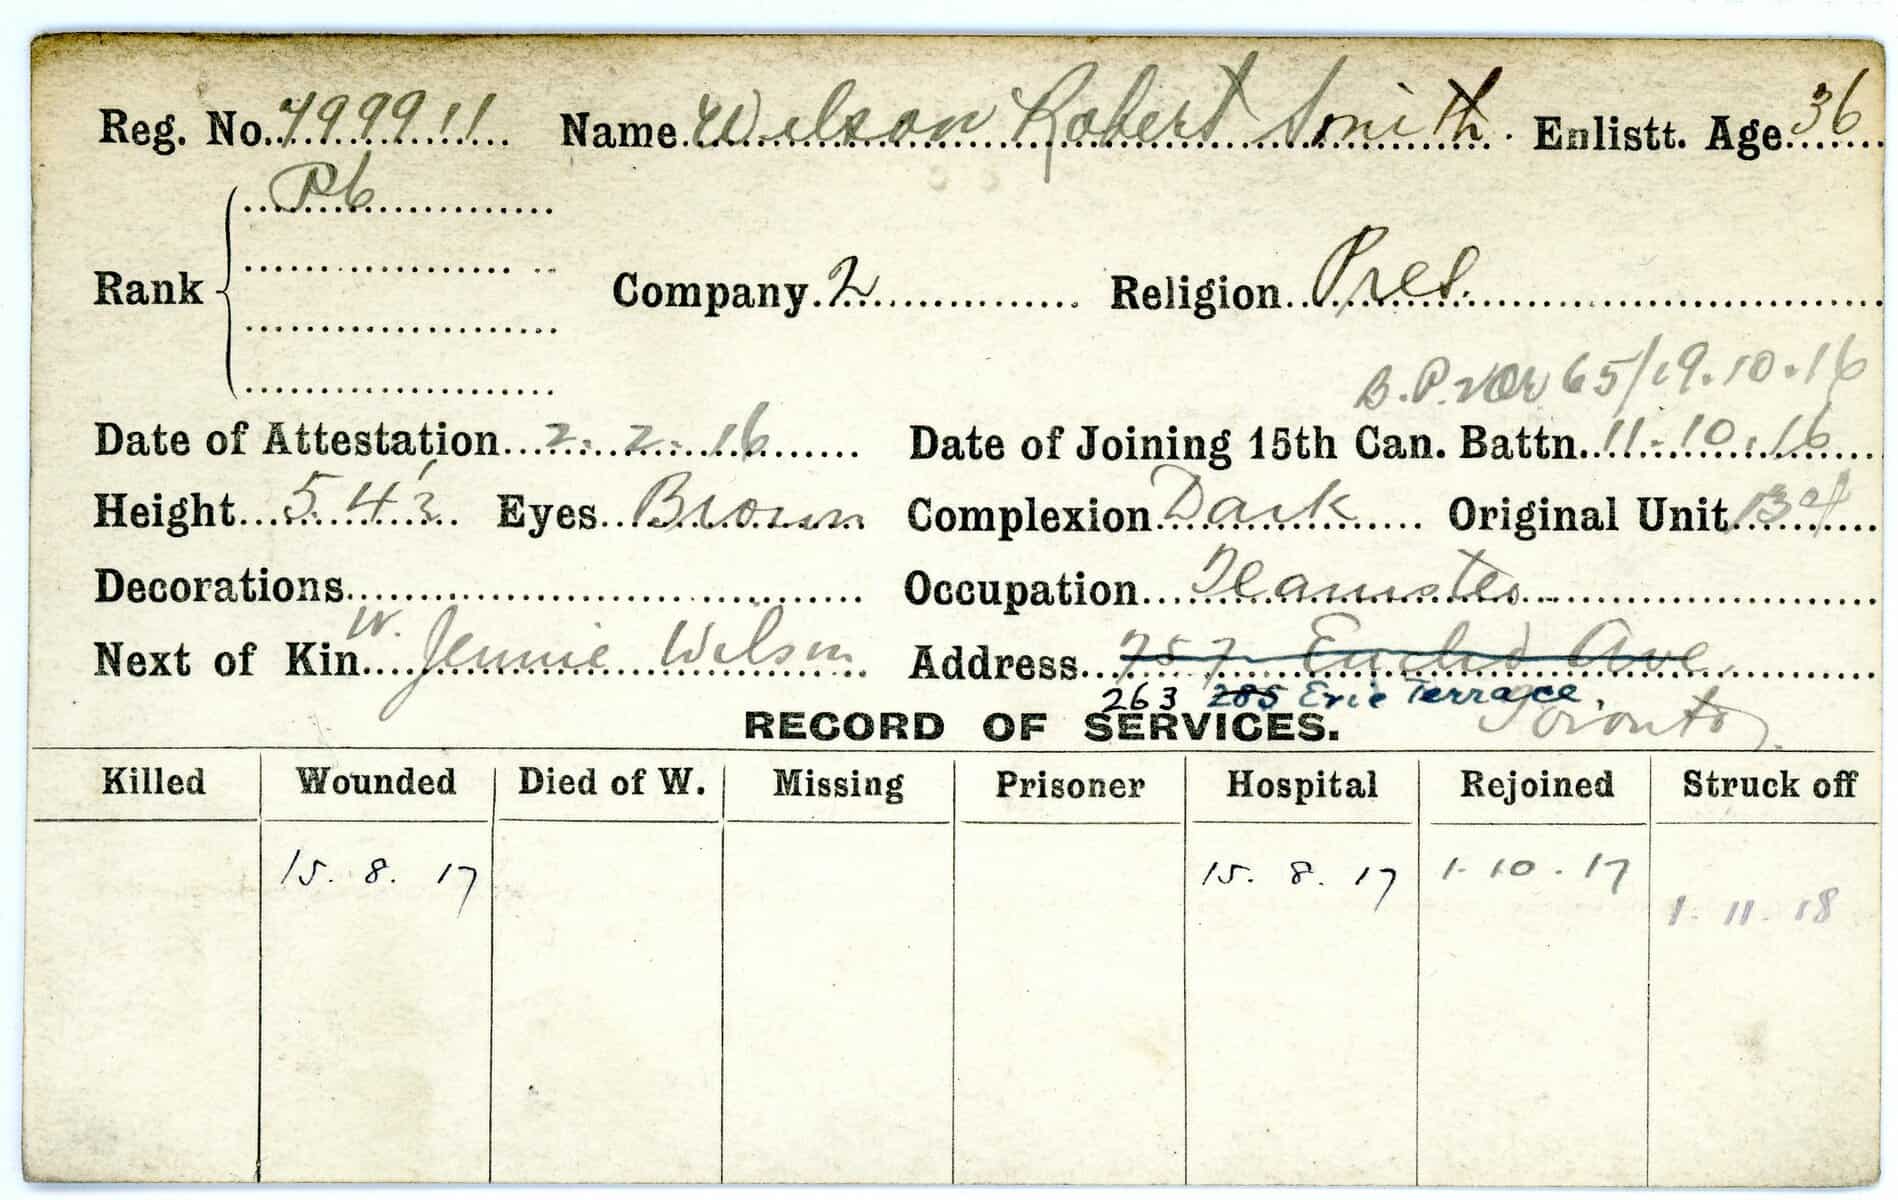 Reg. No. 799911 Name Wilson Robert Smith Enlistt. Age 36
Rank Pte Company 2 Religion Pres.
65/19.10.16
Date of Attestation 2.2.16 Date of Joining 15th Can. Battn. 11.10.16
Height 5.4½ Eyes Brown Complexion Dark Original Unit 134
Decorations Occupation Teamster
W.
Next of Kin Jennie Wilson Address 757 Euclid Ave
263 285 Erie Terrace, Toronto
RECORD OF SERVICES.
Killed Wounded Died of W. Missing Prisoner Hospital Rejoined Struck off
15. 8. 17 15. 8. 17 1-10.17
1. 11. 18